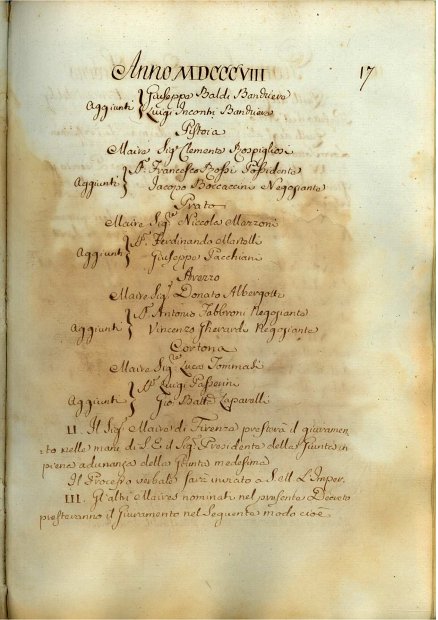 Anno MDCCCVIII 17
Giuseppe Baldi Bandiera
Aggiunti
Luigi Incontri Bandiera
Pistoia
Maire Sigr. Clemente Rospigliosi
Francesco Rossi Possidente
Aggiunti
Jacopo Boccaccini Negoziante
Prato
Maire Sigr. Niccola Marzoni
Ferdinando Martelli
Aggiunti
Giuseppe Pacchiani
Arezzo
Maire Sigr. Donato Albergotti
Antonio Fabbroni Negoziante
Aggiunti
Vincenzo Gherardi Neggiante
Cortona
Maire Sigre. Luca Tommasi
Luigi Passerini
Aggiunti
Gio Batta Zaparelli
II. Il Sigr. Maire di Firenze presterà il giuramen-
to nelle mani di S.E. il Sigr. Presidente della Giunta in
piena adunanza della Giunta medesima
Il Processo verbale sarà inviato a S.E. il L'Imper.
III. Gl'altri Maires nominati nel presente Decreto
presteranno il Giuramento nel Seguente modo cioè